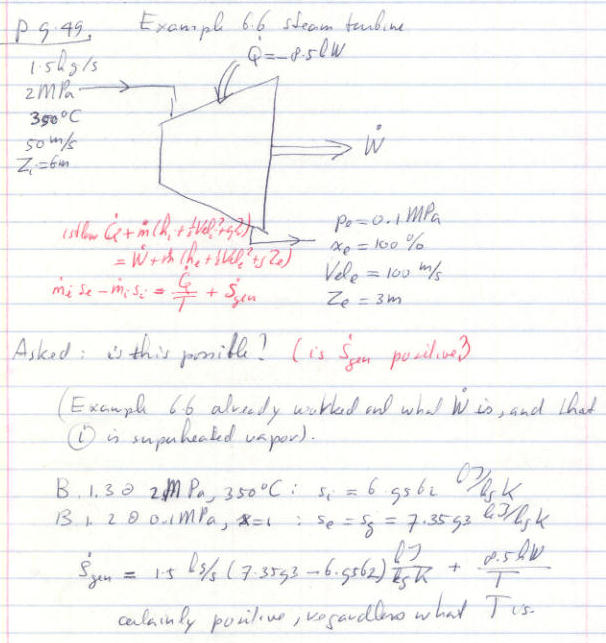 Pg. 49.
Example 6.6 steam turbine
Q̇ = -8.5 kW
1.5 kg/s
2 MPa
350°C
50 m/s
Zi = 6m
Ẇ
1st law Q̇ + ṁ(hi + ½Veli² + gZi)
= Ẇ + ṁ(he + ½Vele² + gZe)
ṁe se - ṁi si = Q̇/T + Ṡgen
pe = 0.1 MPa
xe = 100 %
Vele = 100 m/s
Ze = 3m
Asked: is this possible? (is Ṡgen positive?)
(Example 6.6 already worked out what Ẇ is, and that
① is superheated vapor).
B.1.3 @ 2 MPa, 350°C: si = 6.9562 kJ/kg K
B.1.2 @ 0.1 MPa, x=1 : se = sg = 7.3593 kJ/kg K
Ṡgen = 1.5 kg/s (7.3593 - 6.9562) kJ/kg K + 8.5 kW/T
certainly positive, regardless what T is.